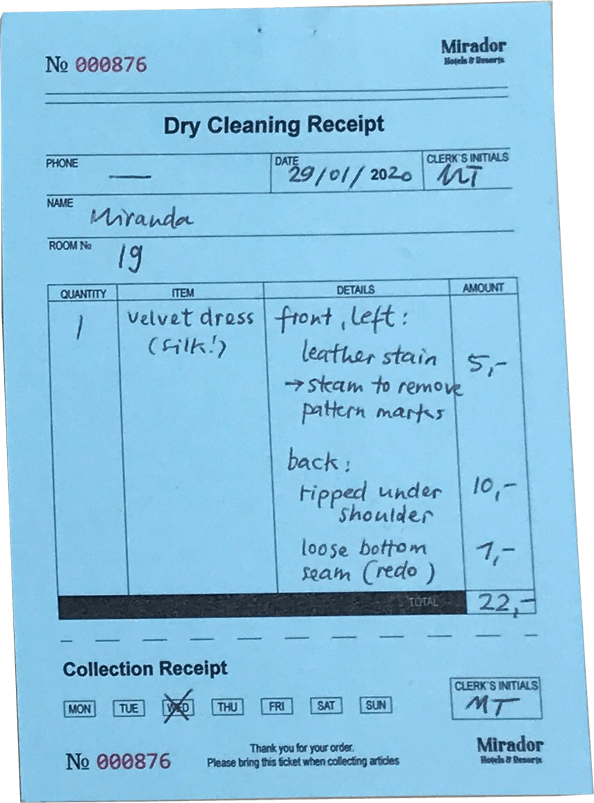 № 000876
Mirador
Hotels & Resorts
Dry Cleaning Receipt
PHONE
—
DATE
29/01/2020
CLERK'S INITIALS
MT
NAME
Miranda
ROOM №
19
QUANTITY ITEM DETAILS AMOUNT
1 velvet dress front, left:
(silk!)
leather stain 5,-
→ steam to remove
pattern marks
back:
ripped under 10,-
shoulder
loose bottom 7,-
seam (redo)
TOTAL 22,-
Collection Receipt
MON TUE WED THU FRI SAT SUN
CLERK'S INITIALS
MT
№ 000876
Thank you for your order.
Please bring this ticket when collecting articles
Mirador
Hotels & Resorts